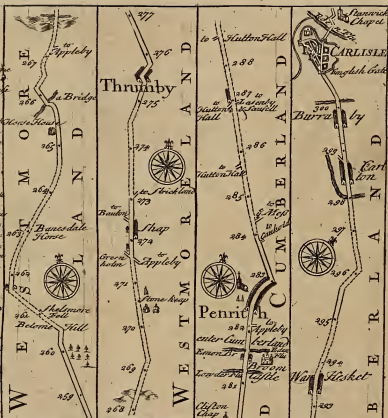 to
Appleby
267
266
a Bridge
Horse House
265
264
Banesdale
House
263
262
Shelsmore
Fell
261
Belome Hill
260
259
WESTMORELAND
277
276
Thrumby
275
274
to Strickland
273
to
Banton
Shap
272
Green
holm
to
Appleby
271
Stone heap
270
269
268
WESTMORELAND
to Hutton Hall
288
287
to
Lasenby
& Sawfell
to
Hutton
Hall
286
to
Hutton Hall
285
to
284
283
Penrith
282
to
Appleby
enter Cumberland
Emon Br
Broom
Castle
281
Clifton
Chap
CUMBERLAND
Stanwick
Chapel
CARLISLE
English Gate
300
Burraby
299
Carl
ton
298
297
296
295
294
Hesket
293